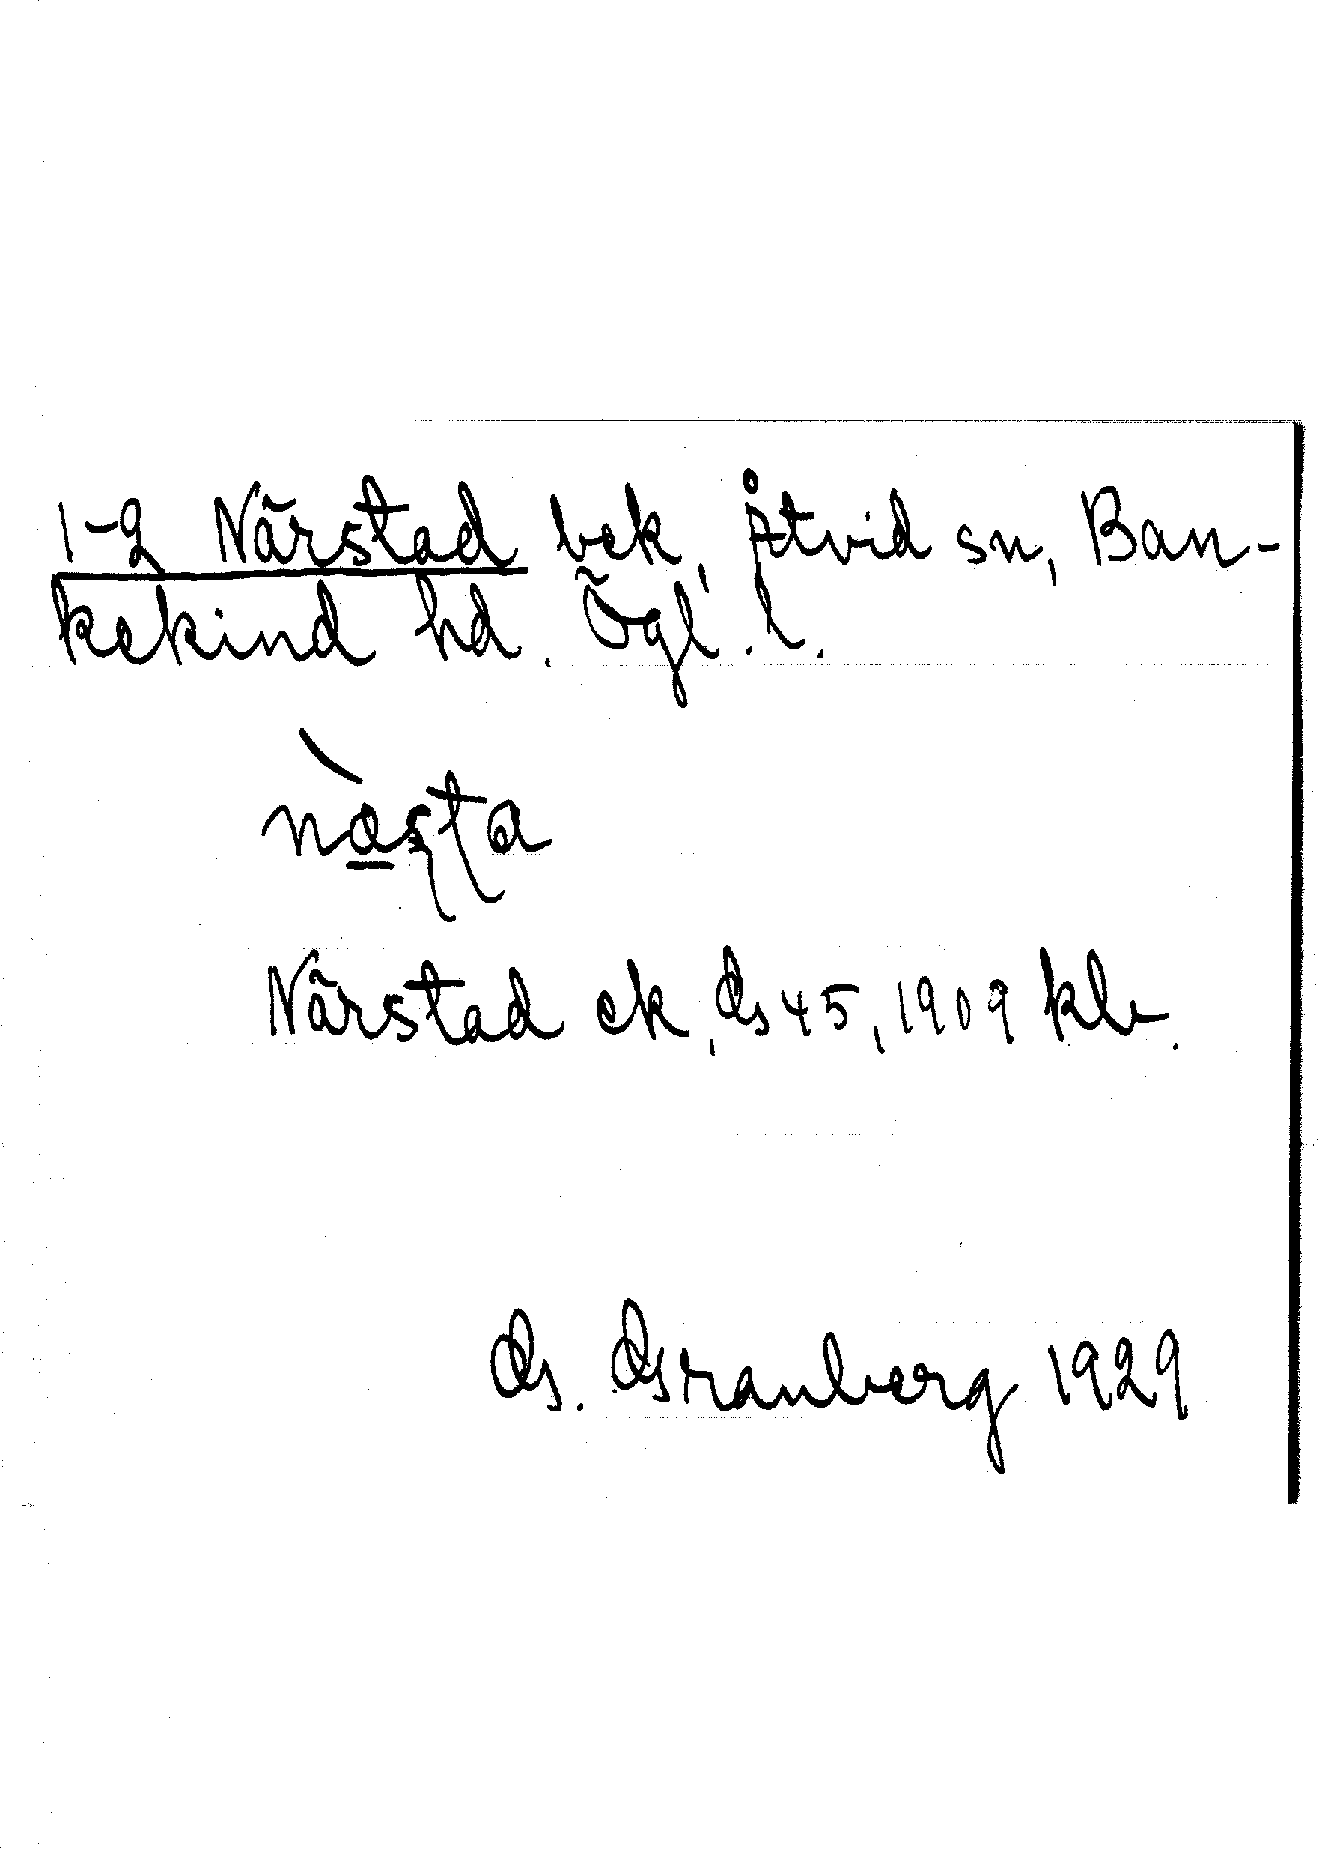 1-2 Närstad bek, Åtvid sn, Ban-
kekind hd. Ögl. l.
nàşƫa
Närstad ek, Gs 45, 1909 kbr.
G. Granberg 1929